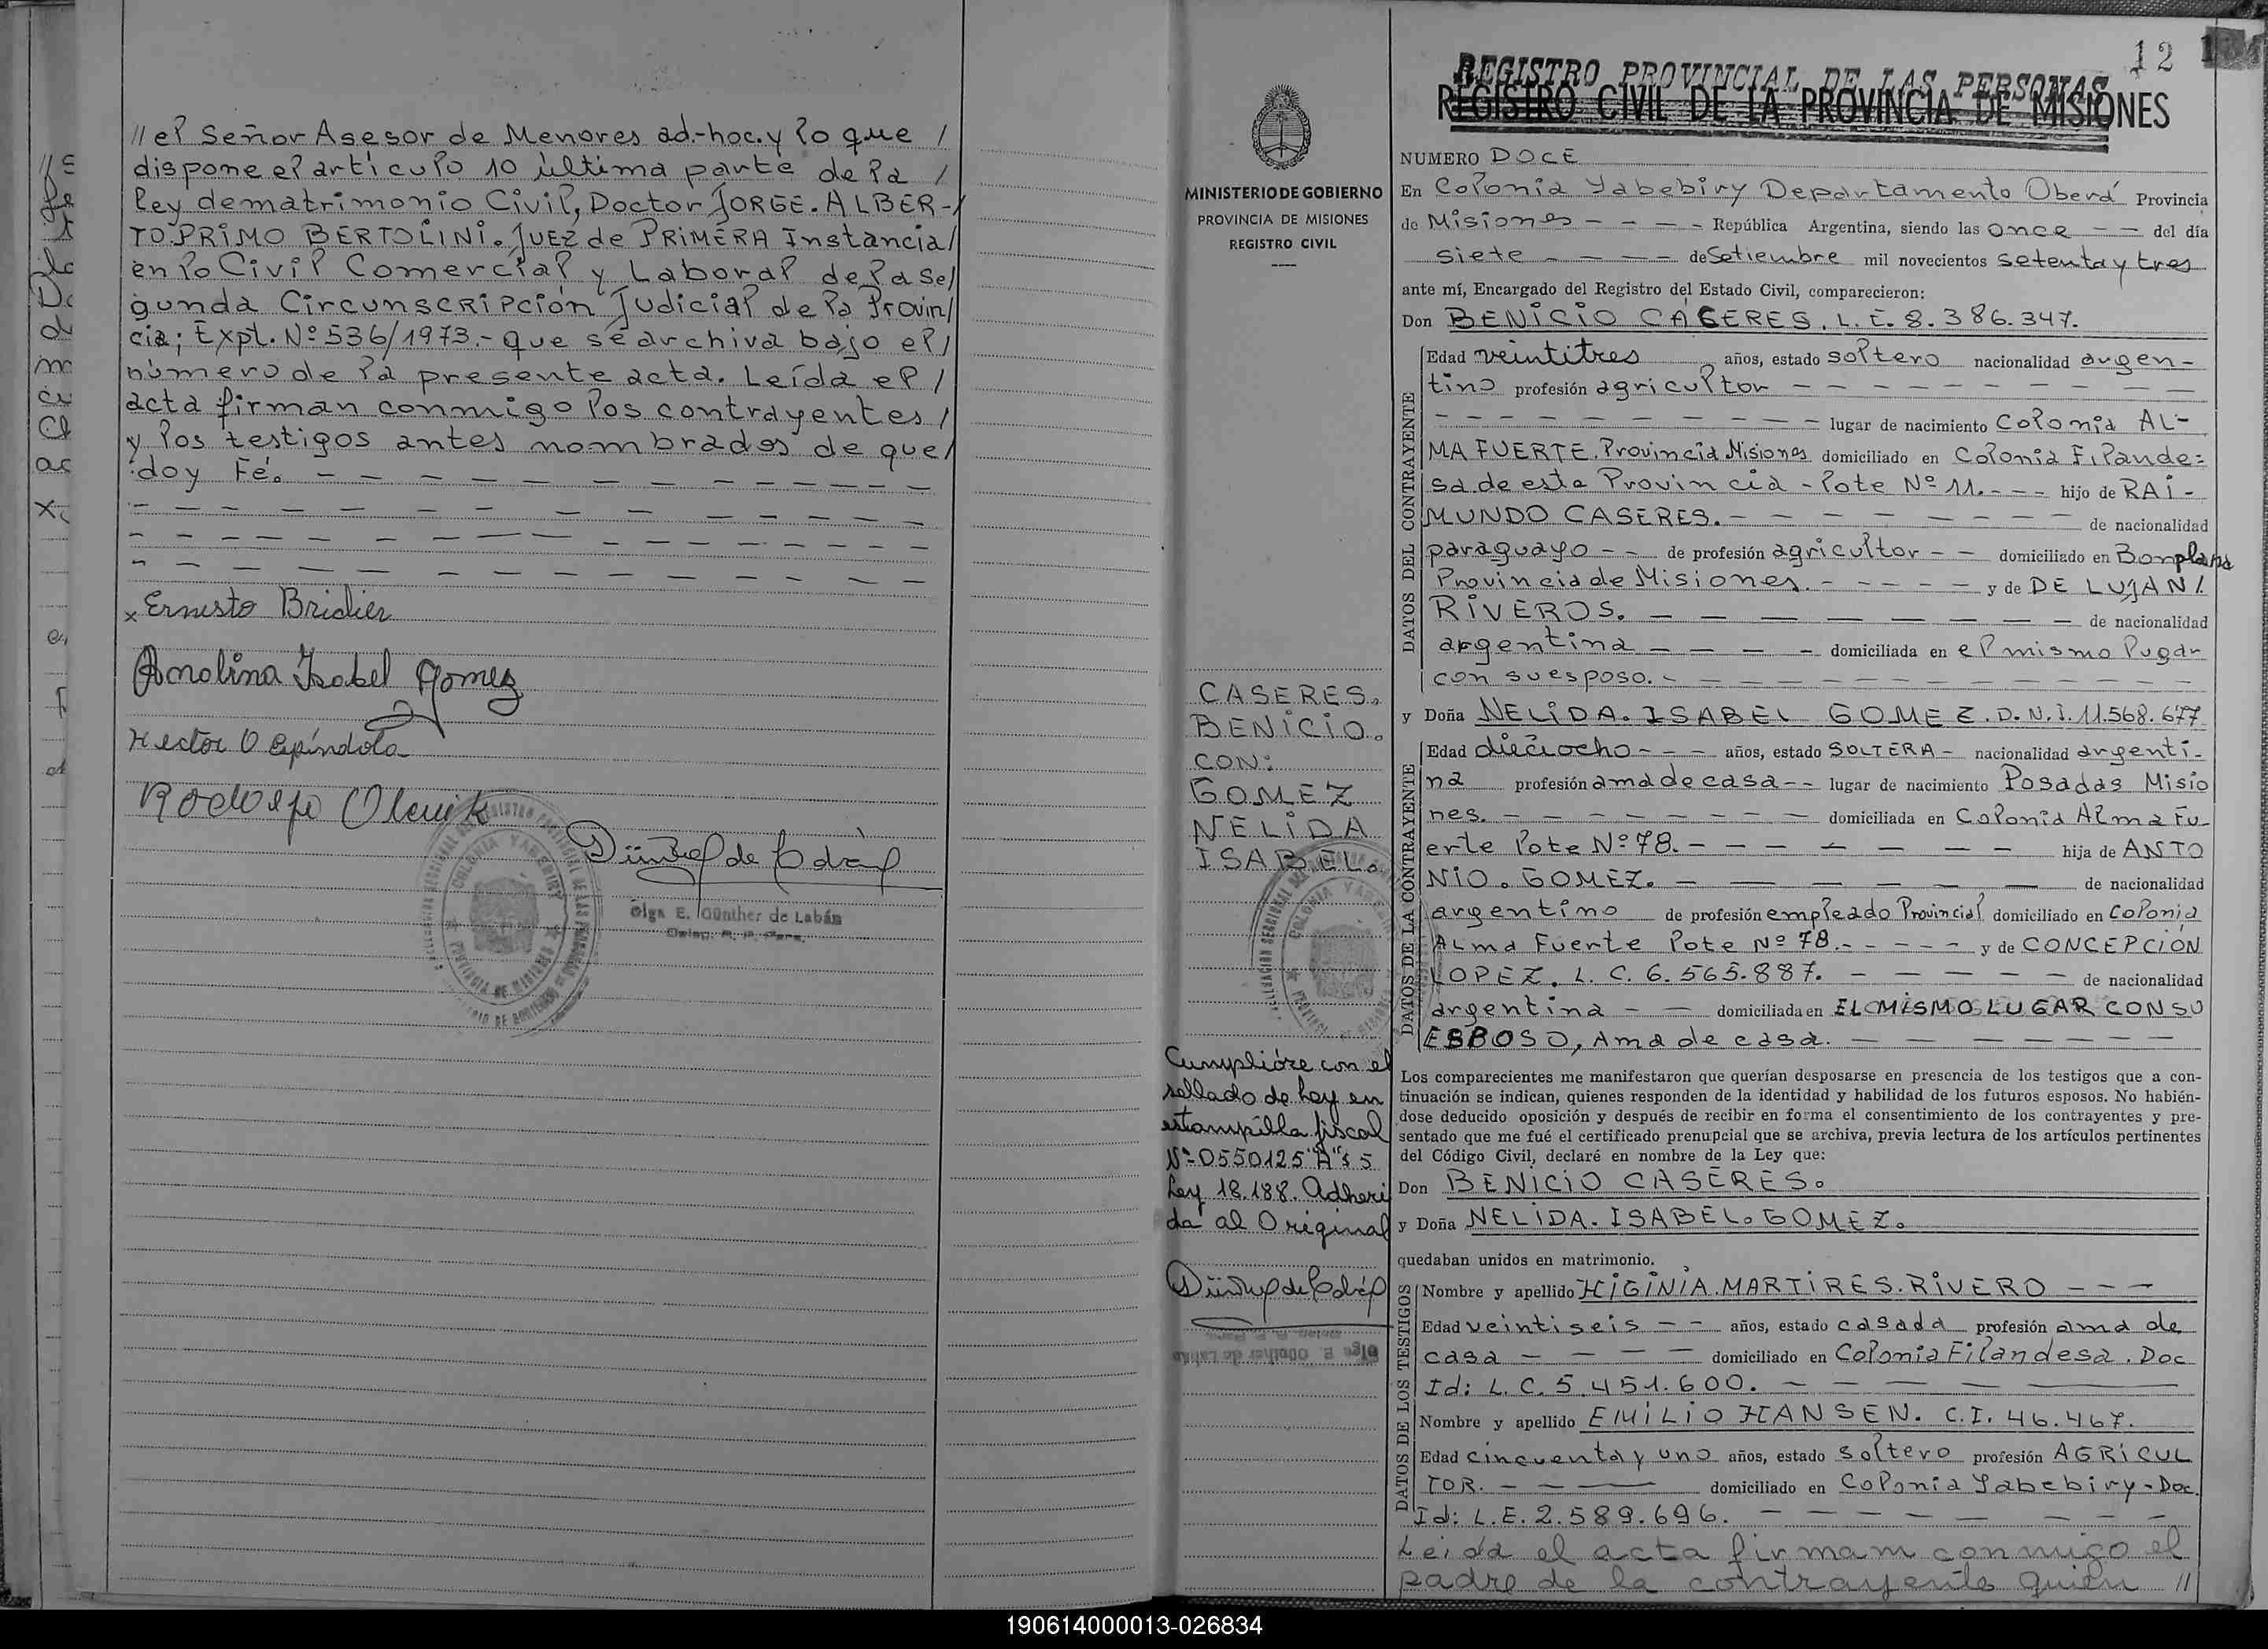 //el Señor Asesor de Menores ad-hoc. y lo que /
dispone el artículo 10 última parte de la /
Ley de matrimonio Civil, Doctor JORGE. ALBER-/
TO. PRIMO BERTOLINI. JUEZ de PRIMERA Instancia/
en lo Civil Comercial y Laboral de la Se/
gunda Circunscripción Judicial de la Provin/
cia; Expl. Nº 536/1973.- que se archiva bajo el/
número de la presente acta. Leída el /
acta firman conmigo los contrayentes /
y los testigos antes nombrados de que/
doy Fé. - - - - - - - - - - -
x Ernesto Bridier
Amolina Isabel Gomez
Hector O Espíndola
Rodolfo Olenik
Günther de Labán
Olga E. Günther de Labán
Deleg. R. P. Pers.
12
REGISTRO PROVINCIAL DE LAS PERSONAS
REGISTRO CIVIL DE LA PROVINCIA DE MISIONES
MINISTERIO DE GOBIERNO
PROVINCIA DE MISIONES
REGISTRO CIVIL
CASERES.
BENICIO.
CON:
GOMEZ
NELIDA
ISABEL.
Cumplióse con el
sellado de hoy en
estampilla fiscal
Nº 0550125 "A" $ 5
Ley 18.188. Adheri
da al Original
Günther de Labán
Olga E. Günther de Labán
NUMERO DOCE
En Colonia Yabebiry Departamento Oberá Provincia
de Misiones - - - - República Argentina, siendo las once - - del día
siete - - - - de Setiembre mil novecientos setenta y tres
ante mí, Encargado del Registro del Estado Civil, comparecieron:
Don BENICIO CASERES. L. E. 8.386.347.
DATOS DEL CONTRAYENTE
Edad veintitres años, estado soltero nacionalidad argen-
tino profesión agricultor - - - - - - - - -
- - - - - - - - - - - lugar de nacimiento Colonia AL-
MA FUERTE. Provincia Misiones domiciliado en Colonia Filande=
sa de esta Provincia - lote Nº 11. - - - hijo de RAI-
MUNDO CASERES. - - - - - - - de nacionalidad
paraguayo - - de profesión agricultor - - domiciliado en Bonpland
Provincia de Misiones. - - - - - y de DE LUJAN/.
RIVEROS. - - - - - - - - de nacionalidad
argentina - - - - domiciliada en el mismo lugar
con su esposo. - - - - - - - - - - - -
y Doña NELIDA. ISABEL GOMEZ. D. N. I. 11.568.677
DATOS DE LA CONTRAYENTE
Edad dieciocho - - - años, estado SOLTERA - nacionalidad argenti-
na profesión ama de casa - - lugar de nacimiento Posadas Misio
nes. - - - - - - - - domiciliada en Colonia Alma Fu-
erte lote Nº 78. - - - - - - - hija de ANTO
NIO. GOMEZ. - - - - - - de nacionalidad
argentino de profesión empleado Provincial domiciliado en Colonia
ALma Fuerte lote Nº 78. - - - - - y de CONCEPCIÓN
LOPEZ. L. C. 6.565.887. - - - - - de nacionalidad
argentina - - domiciliada en EL MISMO LUGAR CON SU
ESPOSO, Ama de casa. - - - - - - -
Los comparecientes me manifestaron que querían desposarse en presencia de los testigos que a con-
tinuación se indican, quienes responden de la identidad y habilidad de los futuros esposos. No habién-
dose deducido oposición y después de recibir en forma el consentimiento de los contrayentes y pre-
sentado que me fué el certificado prenupcial que se archiva, previa lectura de los artículos pertinentes
del Código Civil, declaré en nombre de la Ley que:
Don BENICIO CASERES.
y Doña NELIDA. ISABEL. GOMEZ.
quedaban unidos en matrimonio.
DATOS DE LOS TESTIGOS
Nombre y apellido HIGINIA. MARTIRES. RIVERO - - -
Edad veintiseis - - años, estado casada profesión ama de
casa - - - - domiciliado en Colonia Filandesa. Doc
Id: L. C. 5.451.600. - - - - -
Nombre y apellido EMILIO HANSEN. C. I. 46.467.
Edad cincuenta y uno años, estado soltero profesión AGRICUL
TOR. - - - domiciliado en Colonia Yabebiry - Doc.
Id: L. E. 2.589.696. - - - - - - - -
Leida el acta firmam conmigo el
padre de la contrayente quien //
190614000013-026834